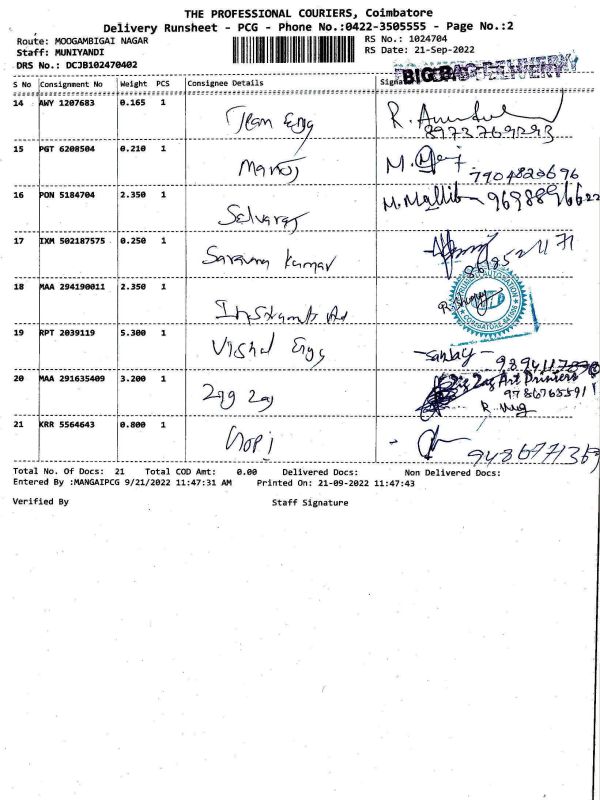 THE PROFESSIONAL COURIERS, Coimbatore
Delivery Runsheet - PCG - Phone No.:0422-3505555 - Page No.:2
Route: MOOGAMBIGAI NAGAR RS No.: 1024704
Staff: MUNIYANDI RS Date: 21-Sep-2022
DRS No.: DCJB102470402
BIG BAG DELIVERY
S No Consignment No Weight PCS Consignee Details Signa
14 AWY 1207683 0.165 1 Team Engg R.
8973769293
15 PGT 6208504 0.210 1 Manoj M.
7904823696
16 PON 5184704 2.350 1 Selvaraj M.Mallika
17 IXM 502187575 0.250 1 Saravana Kumar
18 MAA 294190011 2.350 1
COIMBATORE
19 RPT 2039119 5.300 1 Vishal Engg -Sanjay-
20 MAA 291635409 3.200 1 Zig Zag Zig Zag Art Printers
9786765591
R.
21 KRR 5564643 0.800 1 Gopi
Total No. Of Docs: 21 Total COD Amt: 0.00 Delivered Docs: Non Delivered Docs:
Entered By :MANGAIPCG 9/21/2022 11:47:31 AM Printed On: 21-09-2022 11:47:43
Verified By Staff Signature